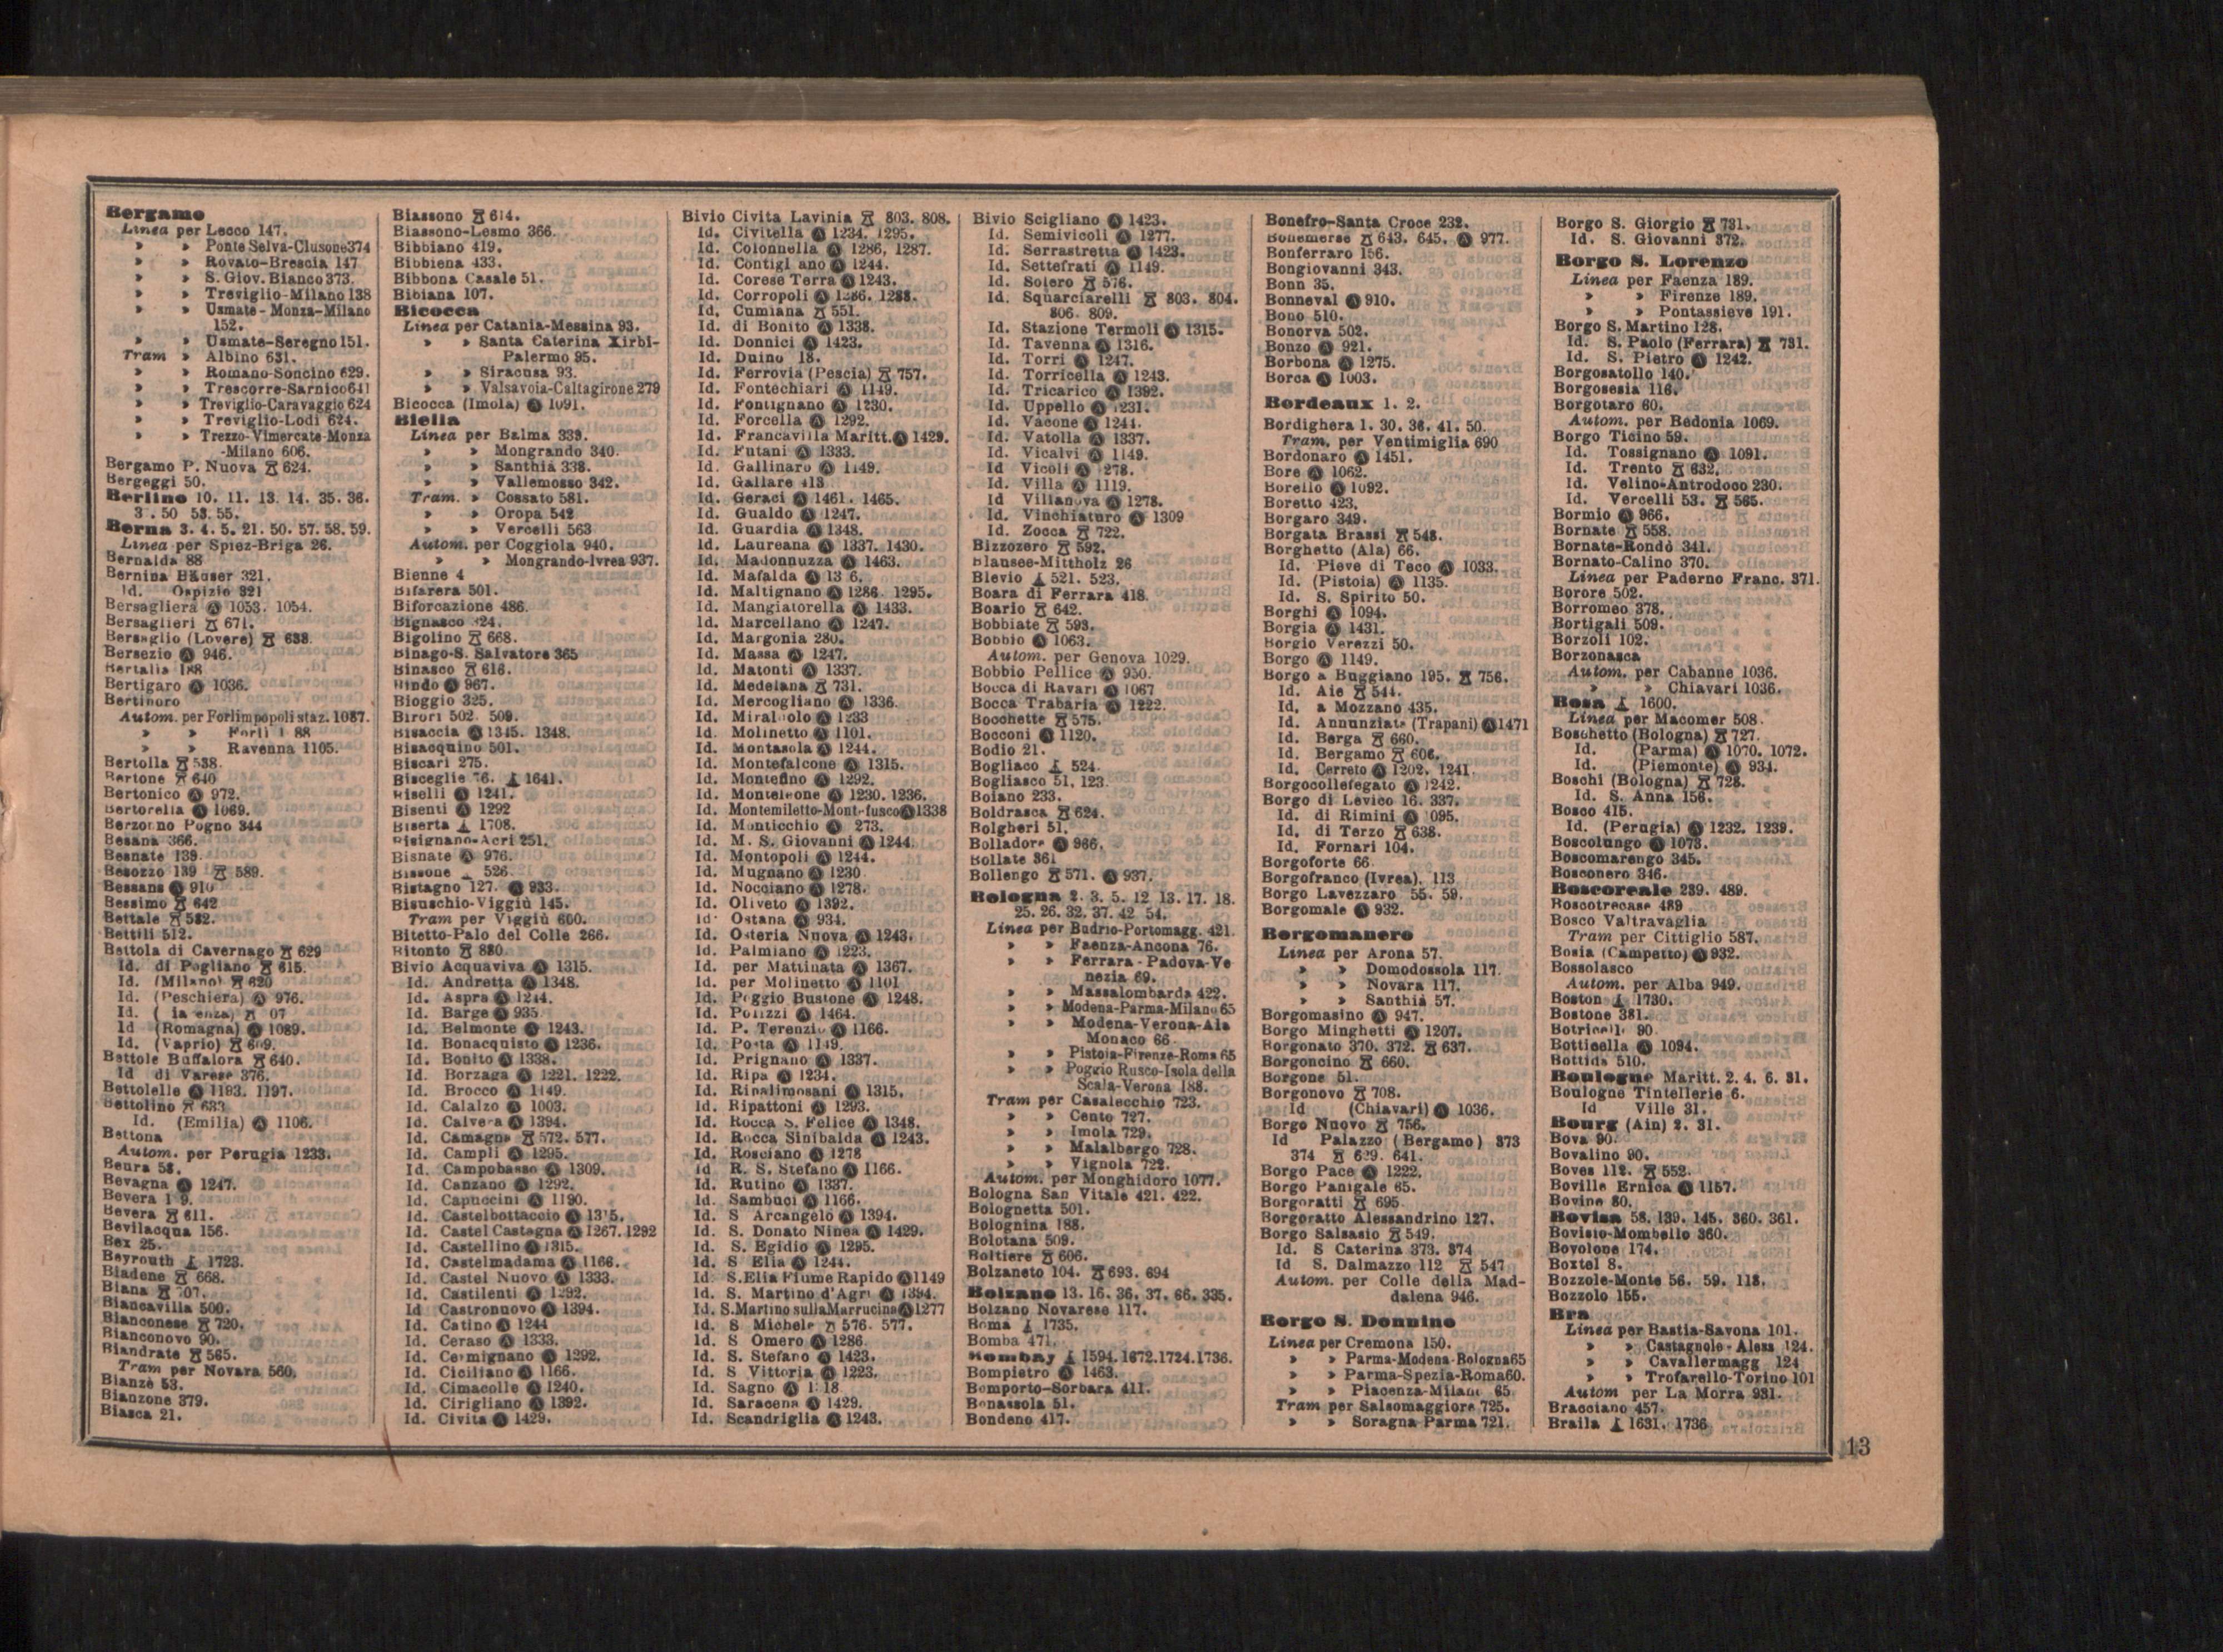 Bergamo
Linea per Lecco 147.
» » Ponte Selva-Clusone 374
» » Rovato-Brescia 147
» » S. Giov. Bianco 373.
» » Treviglio-Milano 138
» » Usmate-Monza-Milano
152.
» » Usmate-Seregno 151.
Tram » Albino 631.
» » Romano-Soncino 629.
» » Trescorre-Sarnico 641
» » Treviglio-Caravaggio 624
» » Treviglio-Lodi 624.
» » Trezzo-Vimercate-Monza
-Milano 606.
Bergamo P. Nuova 624.
Bergeggi 50.
Berlino 10. 11. 13. 14. 35. 36.
50 53. 55.
Berna 3. 4. 5. 21. 50. 57. 58. 59.
Linea per Spiez-Briga 26.
Bernalda 88
Bernina Häuser 321.
Id. Ospizio 321
Bersagliera Ⓐ 1053. 1054.
Bersaglieri 671.
Bersaglio (Lovere) 638.
Bersezio Ⓐ 946.
Bertalia 188
Bertigaro Ⓐ 1036.
Bertinoro
Autom. per Forlimpopoli staz. 1087.
» » Forlì
» » Ravenna 1105.
Bertolla 538.
Bertone 640
Bertonico Ⓐ 972.
Bertorella Ⓐ 1069.
Borzono Pogno 344
Besana 366.
Besnate 139.
Besozzo 139 589.
Bessans Ⓐ 910
Bessimo 642
Bettale 582.
Bettili 512.
Bettola di Cavernago 629
Id. di Pogliano 615.
Id. (Milano) 620
Id. (Peschiera) Ⓐ 976.
Id.
Id (Romagna) Ⓐ 1089.
Id. (Vaprio) 609.
Bettole Buffalora 640.
Id di Varese 376.
Bettolelle Ⓐ 1193. 1197.
Bettolino 633
Id. (Emilia) Ⓐ 1106.
Bettona
Autom. per Perugia 1233.
Beura 58.
Bevagna Ⓐ 1247.
Bevera
Bevera 611.
Bevilacqua 156.
Bex 25.
Beyrouth 1723.
Biadene 668.
Biana
Biancavilla 500.
Bianconese 720.
Bianconovo 90.
Biandrate 565.
Tram per Novara 560.
Bianzè 53.
Bianzone 379.
Biasca 21.
Biassono 614.
Biassono-Lesmo 366.
Bibbiano 419.
Bibbiena 433.
Bibbona Casale 51.
Bibiana 107.
Bicocca
Linea per Catania-Messina 93.
» » Santa Caterina Xirbi-
Palermo 95.
» » Siracusa 93.
» » Valsavoia-Caltagirone 279
Bicocca (Imola) Ⓐ 1091.
Biella
Linea per Balma 339.
» » Mongrando 340.
» » Santhià 338.
» » Vallemosso 342.
Tram. » Cossato 581.
» » Oropa 542
» » Vercelli 563
Autom. per Coggiola 940.
» » Mongrando-Ivrea 937.
Bienne 4
Bifarera 501.
Biforcazione 486.
Bignasco 324.
Bigolino 668.
Binago-S. Salvatore 365
Binasco 616.
Bindo Ⓐ 967.
Bioggio 325.
Birori 502. 509.
Bisaccia Ⓐ 1345. 1348.
Bisacquino 501.
Biscari 275.
Bisceglie 76. 1641.
Biselli Ⓐ 1241.
Bisenti Ⓐ 1292
Biserta 1708.
Bisignano-Acri 251.
Bisnate Ⓐ 976.
Bissone 526.
Bistagno 127. Ⓐ 933.
Bisuschio-Viggiù 145.
Tram per Viggiù 600.
Bitetto-Palo del Colle 266.
Bitonto 880.
Bivio Acquaviva Ⓐ 1315.
Id. Andretta Ⓐ 1348.
Id. Aspra Ⓐ 1244.
Id. Barge Ⓐ 935
Id. Belmonte Ⓐ 1243.
Id. Bonacquisto Ⓐ 1236.
Id. Bonito Ⓐ 1338.
Id. Borzaga Ⓐ 1221. 1222.
Id. Brocco Ⓐ 1149.
Id. Calalzo Ⓐ 1003.
Id. Calvera Ⓐ 1394.
Id. Camagna 572. 577.
Id. Campli Ⓐ 1295.
Id. Campobasso Ⓐ 1309.
Id. Canzano Ⓐ 1292.
Id. Capuccini Ⓐ 1190.
Id. Castelbottaccio Ⓐ 1315.
Id. Castel Castagna Ⓐ 1267. 1292
Id. Castellino Ⓐ 1315.
Id. Castelmadama Ⓐ 1166.
Id. Castel Nuovo Ⓐ 1333.
Id. Castilenti Ⓐ 1292.
Id Castronuovo Ⓐ 1394.
Id. Catino Ⓐ 1244
Id. Ceraso Ⓐ 1333.
Id. Cermignano Ⓐ 1292.
Id. Ciciliano Ⓐ 1166.
Id. Cimacolle Ⓐ 1240.
Id. Cirigliano Ⓐ 1392.
Id. Civita Ⓐ 1429.
Bivio Civita Lavinia 803. 808.
Id. Civitella Ⓐ 1234. 1295.
Id. Colonnella Ⓐ 1286. 1287.
Id. Contigliano Ⓐ 1244.
Id. Corese Terra Ⓐ 1243.
Id. Corropoli Ⓐ 1286. 1288.
Id. Cumiana 551.
Id. di Bonito Ⓐ 1338.
Id. Donnici Ⓐ 1423.
Id. Duino 18.
Id. Ferrovia (Pescia) 757.
Id. Fontechiari Ⓐ 1149.
Id. Fontignano Ⓐ 1230.
Id. Forcella Ⓐ 1292.
Id. Francavilla Maritt. Ⓐ 1429.
Id. Futani Ⓐ 1333.
Id. Gallinaro Ⓐ 1149.
Id. Gallare 413
Id. Geraci Ⓐ 1461. 1465.
Id. Gualdo Ⓐ 1247.
Id. Guardia Ⓐ 1348.
Id. Laureana Ⓐ 1337. 1430.
Id. Madonnuzza Ⓐ 1463.
Id. Mafalda Ⓐ
Id. Maltignano Ⓐ 1286. 1295.
Id. Mangiatorella Ⓐ 1433.
Id. Marcellano Ⓐ 1247.
Id. Margonia 280.
Id. Massa Ⓐ 1247.
Id. Matonti Ⓐ 1337.
Id. Medelana 731.
Id. Mercogliano Ⓐ 1336.
Id. Ⓐ 1233
Id. Molinetto Ⓐ 1101.
Id. Montasola Ⓐ 1244.
Id. Montefalcone Ⓐ 1315.
Id. Montefino Ⓐ 1292.
Id. Monteleone Ⓐ 1230. 1236.
Id. Montemiletto-Montefusco Ⓐ 1338
Id. Monticchio Ⓐ 273.
Id. M. S. Giovanni Ⓐ 1244.
Id. Montopoli Ⓐ 1244.
Id. Mugnano Ⓐ 1230
Id. Nocciano Ⓐ 1278.
Id. Oliveto Ⓐ 1392.
Id. Ostana Ⓐ 934.
Id. Osteria Nuova Ⓐ 1243.
Id. Palmiano Ⓐ 1223.
Id. per Mattinata Ⓐ 1367.
Id. per Molinetto Ⓐ 1101
Id. Poggio Bustone Ⓐ 1248.
Id. Polizzi Ⓐ 1464.
Id. P. Terenzio Ⓐ 1166.
Id. Posta Ⓐ 1149.
Id. Prignano Ⓐ 1337.
Id. Ripa Ⓐ 1234.
Id. Ripalimosani Ⓐ 1315.
Id. Ripattoni Ⓐ 1293.
Id. Rocca S. Felice Ⓐ 1348.
Id. Rocca Sinibalda Ⓐ 1243.
Id. Rosciano Ⓐ 1278
Id R. S. Stefano Ⓐ 1166.
Id. Rutino Ⓐ 1337.
Id. Sambuci Ⓐ 1166.
Id. S Arcangelo Ⓐ 1394.
Id. S. Donato Ninea Ⓐ 1429.
Id. S. Egidio Ⓐ 1295.
Id. S Elia Ⓐ 1244.
Id. S. Elia Fiume Rapido Ⓐ 1149
Id. S. Martino d'Agri Ⓐ 1394.
Id. S. Martino sulla Marrucina Ⓐ 1277
Id. S Michele 576. 577.
Id. S Omero Ⓐ 1286
Id. S. Stefano Ⓐ 1423.
Id. S Vittoria Ⓐ 1223.
Id. Sagno Ⓐ
Id. Saracena Ⓐ 1429.
Id. Scandriglia Ⓐ 1243.
Bivio Scigliano Ⓐ 1423.
Id. Semivicoli Ⓐ 1277.
Id. Serrastretta Ⓐ 1423.
Id. Settefrati Ⓐ 1149.
Id. Solero 576.
Id. Squarciarelli 803. 804.
806. 809.
Id. Stazione Termoli Ⓐ 1315.
Id. Tavenna Ⓐ 1316.
Id. Torri Ⓐ 1247.
Id. Torricella Ⓐ 1243.
Id. Tricarico Ⓐ 1392.
Id. Uppello Ⓐ 1231.
Id. Vacone Ⓐ 1244.
Id. Vatolla Ⓐ 1337.
Id. Vicalvi Ⓐ 1149.
Id Vicoli Ⓐ 1278.
Id. Villa Ⓐ 1119.
Id Villanova Ⓐ 1278.
Id. Vinchiaturo Ⓐ 1309
Id. Zocca 722.
Bizzozero 592.
Blausee-Mittholz 26
Blevio 521. 523.
Boara di Ferrara 418.
Boario 642.
Bobbiate 593.
Bobbio Ⓐ 1063.
Autom. per Genova 1029.
Bobbio Pellice Ⓐ 930.
Bocca di Ravari Ⓐ 1067
Bocca Trabaria Ⓐ 1222.
Bocchette 575.
Bocconi Ⓐ 1120.
Bodio 21.
Bogliaco 524.
Bogliasco 51. 123.
Boiano 233.
Boldrasca 624.
Bolgheri 51.
Bolladore Ⓐ 966.
Bollate 361
Bollengo 571. Ⓐ 937.
Bologna 2. 3. 5. 12 13. 17. 18.
25. 26. 32. 37. 42 54.
Linea per Budrio-Portomagg. 421.
» » Faenza-Ancona 76.
» » Ferrara-Padova-Ve
nezia 69.
» » Massalombarda 422.
» » Modena-Parma-Milano 65
» » Modena-Verona-Ala
Monaco 66
» » Pistoia-Firenze-Roma 65
» » Poggio Rusco-Isola della
Scala-Verona 188.
Tram per Casalecchio 723.
» » Cento 727.
» » Imola 729.
» » Malalbergo 728.
» » Vignola 722.
Autom. per Monghidoro 1077.
Bologna San Vitale 421. 422.
Bolognetta 501.
Bolognina 188.
Bolotana 509.
Boltiere 606.
Bolzaneto 104. 693. 694
Bolzano 13. 16. 36. 37. 66. 335.
Bolzano Novarese 117.
Boma 1735.
Bomba 471.
Bombay 1594. 1672. 1724. 1736.
Bompietro Ⓐ 1463.
Bomporto-Sorbara 411.
Bonassola 51.
Bondeno 417.
Bonefro-Santa Croce 232.
Bonemerse 643. 645. Ⓐ 977.
Bonferraro 156.
Bongiovanni 343.
Bonn 35.
Bonneval Ⓐ 910.
Bono 510.
Bonorva 502.
Bonzo Ⓐ 921.
Borbona Ⓐ 1275.
Borca Ⓐ 1003.
Bordeaux 1. 2.
Bordighera 1. 30. 36. 41. 50.
Tram. per Ventimiglia 690
Bordonaro Ⓐ 1451.
Bore Ⓐ 1062.
Borello Ⓐ 1092.
Boretto 423.
Borgaro 349.
Borgata Brassi 548.
Borghetto (Ala) 66.
Id. Pieve di Teco Ⓐ 1033.
Id. (Pistoia) Ⓐ 1135.
Id. S. Spirito 50.
Borghi Ⓐ 1094.
Borgia Ⓐ 1431.
Borgio Verezzi 50.
Borgo Ⓐ 1149.
Borgo a Buggiano 195. 756.
Id. Aie 544.
Id. a Mozzano 435.
Id. Annunziata (Trapani) Ⓐ 1471
Id. Berga 660.
Id. Bergamo 606.
Id. Cerreto Ⓐ 1202. 1241.
Borgocollefegato Ⓐ 1242.
Borgo di Levico 16. 337.
Id. di Rimini Ⓐ 1095.
Id. di Terzo 638.
Id. Fornari 104.
Borgoforte 66
Borgofranco (Ivrea). 113
Borgo Lavezzaro 55. 59.
Borgomale Ⓐ 932.
Borgomanero
Linea per Arona 57.
» » Domodossola 117.
» » Novara 117.
» » Santhià 57.
Borgomasino Ⓐ 947.
Borgo Minghetti Ⓐ 1207.
Borgonato 370. 372. 637.
Borgoncino 660.
Borgone 51.
Borgonovo 708.
Id (Chiavari) Ⓐ 1036.
Borgo Nuovo 756.
Id Palazzo (Bergamo) 373
374 629. 641.
Borgo Pace Ⓐ 1222.
Borgo Panigale 65.
Borgoratti 695
Borgoratto Alessandrino 127.
Borgo Salsasio 549.
Id. S Caterina 373. 374
Id S. Dalmazzo 112 547
Autom. per Colle della Mad-
dalena 946.
Borgo S. Donnino
Linea per Cremona 150.
» » Parma-Modena-Bologna 65
» » Parma-Spezia-Roma 60.
» » Piacenza-Milano 65
Tram per Salsomaggiore 725.
» » Soragna-Parma 721.
Borgo S. Giorgio 731.
Id. S. Giovanni 372.
Borgo S. Lorenzo
Linea per Faenza 189.
» » Firenze 189.
» » Pontassieve 191.
Borgo S. Martino 128.
Id. S. Paolo (Ferrara) 731.
Id. S. Pietro Ⓐ 1242.
Borgosatollo 140.
Borgosesia 116.
Borgotaro 60.
Autom. per Bedonia 1069.
Borgo Ticino 59.
Id. Tossignano Ⓐ 1091.
Id. Trento 632.
Id. Velino-Antrodoco 230.
Id. Vercelli 53. 565.
Bormio Ⓐ 966.
Bornate 558.
Bornate-Rondò 341.
Bornato-Calino 370.
Linea per Paderno Franc. 371.
Borore 502.
Borromeo 378.
Bortigali 509.
Borzoli 102.
Borzonasca
Autom. per Cabanne 1036.
» » Chiavari 1036.
Bosa 1600.
Linea per Macomer 508.
Boschetto (Bologna) 727.
Id. (Parma) Ⓐ 1070. 1072.
Id. (Piemonte) Ⓐ 934.
Boschi (Bologna) 728.
Id. S. Anna 156.
Bosco 415.
Id. (Perugia) Ⓐ 1232. 1239.
Boscolungo Ⓐ 1073.
Boscomarengo 345.
Bosconero 346.
Boscoreale 239. 489.
Boscotrecase 489
Bosco Valtravaglia
Tram per Cittiglio 587.
Bosia (Campetto) Ⓐ 932.
Bossolasco
Autom. per Alba 949.
Boston 1730.
Bostone 381.
Botricello 90
Botticella Ⓐ 1094.
Bottida 510.
Boulogne Maritt. 2. 4. 6. 31.
Boulogne Tintellerie 6.
Id Ville 31.
Bourg (Ain) 2. 31.
Bova 90.
Bovalino 90.
Boves 112. 552.
Boville Ernica Ⓐ 1157.
Bovino 80.
Bovisa 58. 139. 145. 360. 361.
Bovisio-Mombello 360.
Bovolone 174.
Boxtel 8.
Bozzole-Monte 56. 59. 118.
Bozzolo 155.
Bra
Linea per Bastia-Savona 101.
» » Castagnole-Aless 124.
» » Cavallermagg 124
» » Trofarello-Torino 101
Autom per La Morra 931.
Bracciano 457.
Braila 1631. 1736
13